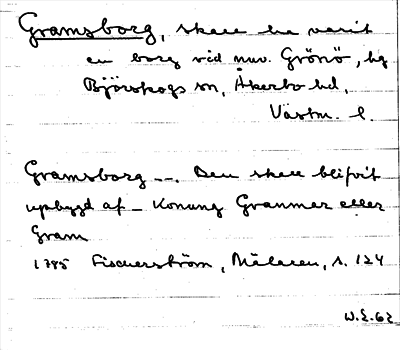 Gramsborg, skall ha varit
en borg vid nuv. Grönö, hg
Björskogs sn, Åkerbo hd,
Västm. l.
Gramsborg --. Den skall blifvit
upbygd af - Konung Granmar eller
Gram
1785 Fischerström, Mälaren, s. 124
W.E. 62